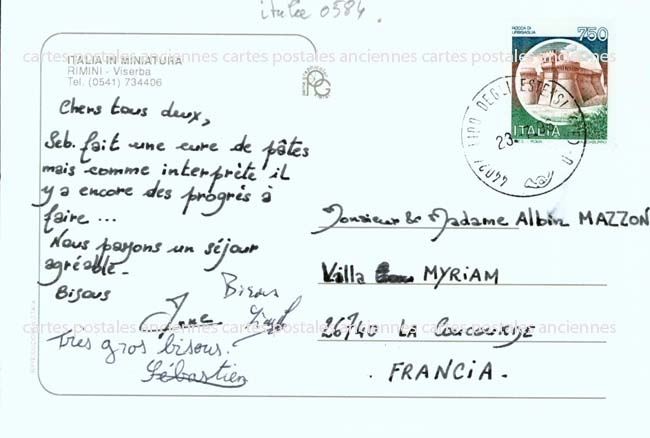 italie 0584.
ITALIA IN MINIATURA
RIMINI - Viserba
Tel. (0541) 734406
cartes postales anciennes cartes postales anciennes cartes postales anciennes
ROCCA DI URBISAGLIA
750
ITALIA
LIDO DEGLI ESTENSI
44024
23
Chers tous deux,
Seb. fait une cure de pâtes
mais comme interprète il
y a encore des progrès à
faire ...
Nous passons un séjour
agréable -
Bisous
Bisous
Très gros bisous.
Sébastien
Monsieur & Madame Albin MAZZON
Villa MYRIAM
cartes postales anciennes cartes postales anciennes cartes postales anciennes
26740 LA COUCOURDE
. FRANCIA -